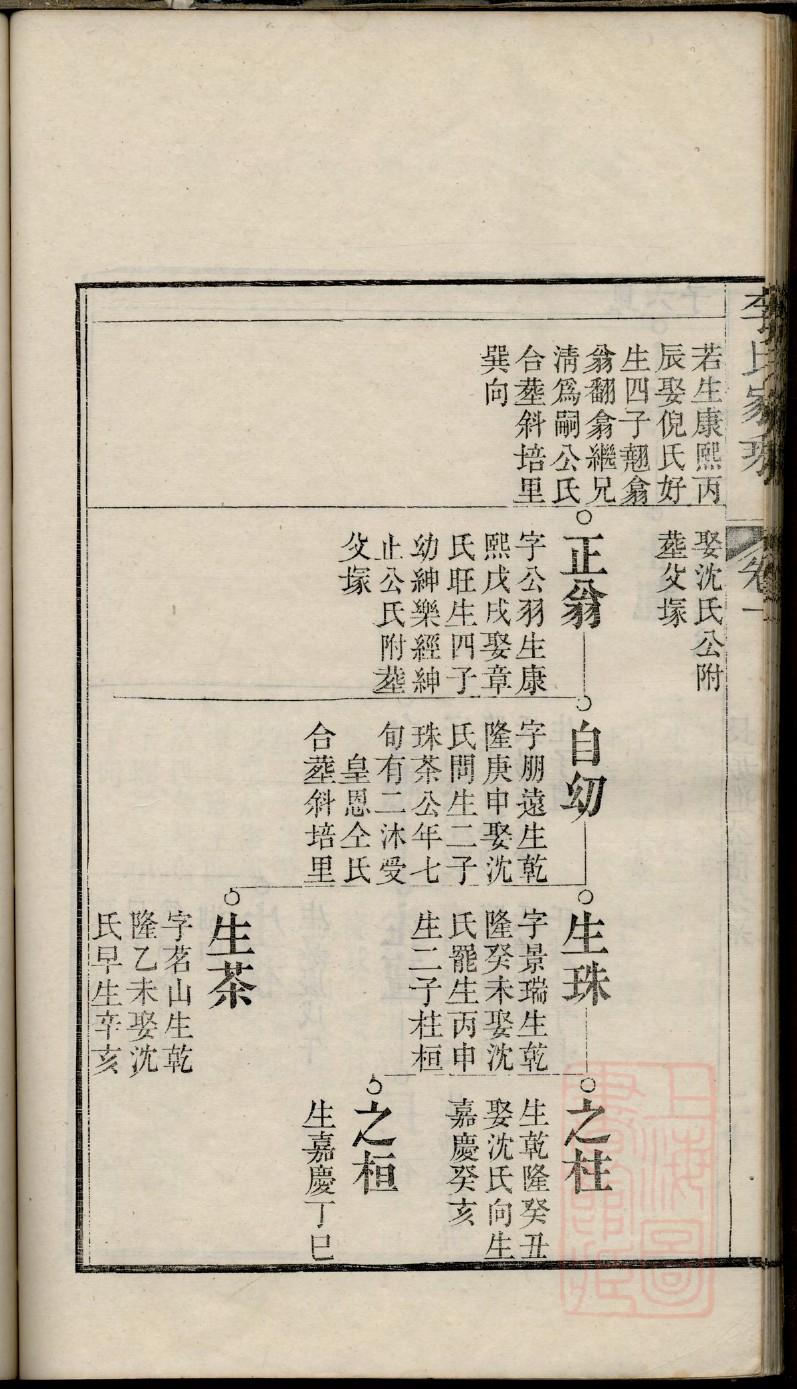 李氏家乘
卷一
若生康熙丙
辰娶倪氏好
生四子翹翕
翁翻翕繼兄
淸爲嗣公氏
合塟斜培里
巽向
娶沈氏公附
塟父塚
正翁
字公羽生康
熙戊戌娶章
氏旺生四子
幼紳樂經紳
止公氏附塟
父塚
自幼
字朋遠生乾
隆庚申娶沈
氏問生二子
珠茶公年七
旬有二沐受
皇恩仝氏
合塟斜培里
生珠
字景瑞生乾
隆癸未娶沈
氏罷生丙申
生二子柱桓
生茶
字茗山生乾
隆乙未娶沈
氏早生辛亥
之柱
生乾隆癸丑
娶沈氏向生
嘉慶癸亥
之桓
生嘉慶丁巳
上海圖
書館藏